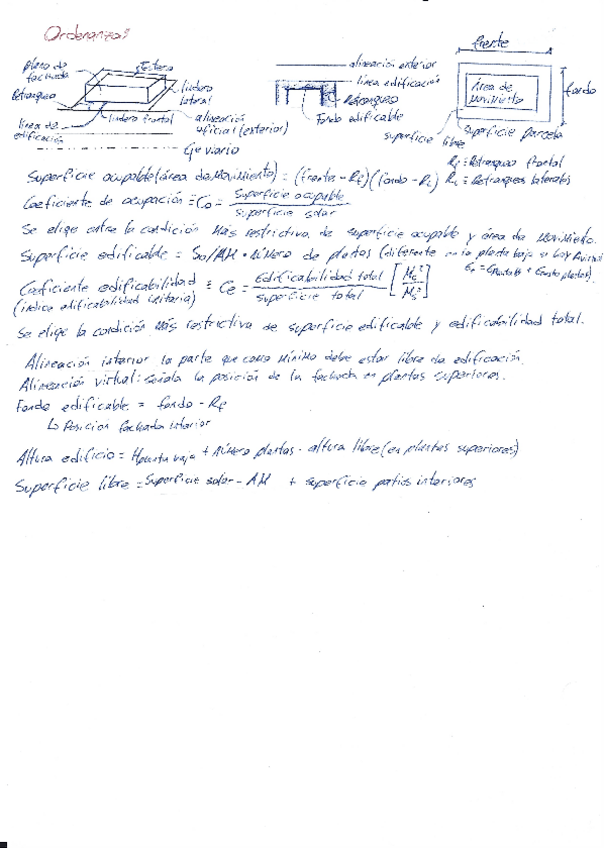 Ordenanzas
plano de fachada
testero
Retranqueo
lindero lateral
línea de edificación
lindero frontal
alineación oficial (exterior)
Eje viario
alineación exterior
línea edificación
Retranqueo
Fondo edificable
frente
Área de Movimiento
fondo
superficie libre
superficie parcela
Rf = Retranqueo frontal
RL = Retranqueos laterales
Superficie ocupable (área de Movimiento) = (frente - Rf) (fondo - RL)
Coeficiente de ocupación ≡ Co = Superficie ocupable / superficie solar
Se elige entre la condición Más restrictiva de superficie ocupable y área de Movimiento.
Superficie edificable = So/AM · Número de plantas (diferente en la planta baja si hay
Coeficiente edificabilidad ≡ Ce = Edificabilidad total / superficie total
(índice edificabilidad unitaria)
Se elige la condición Más restrictiva de superficie edificable y edificabilidad total.
Alineación interior la parte que como Mínimo debe estar libre de edificación.
Alineación virtual: señala la posición de la fachada en plantas superiores.
Fondo edificable = fondo - Rf
↳ Posicion fachada interior
Altura edificio = Hplanta baja + Número plantas · altura libre (en plantas superiores)
Superficie libre = Superficie solar - AM + superficie patios interiores